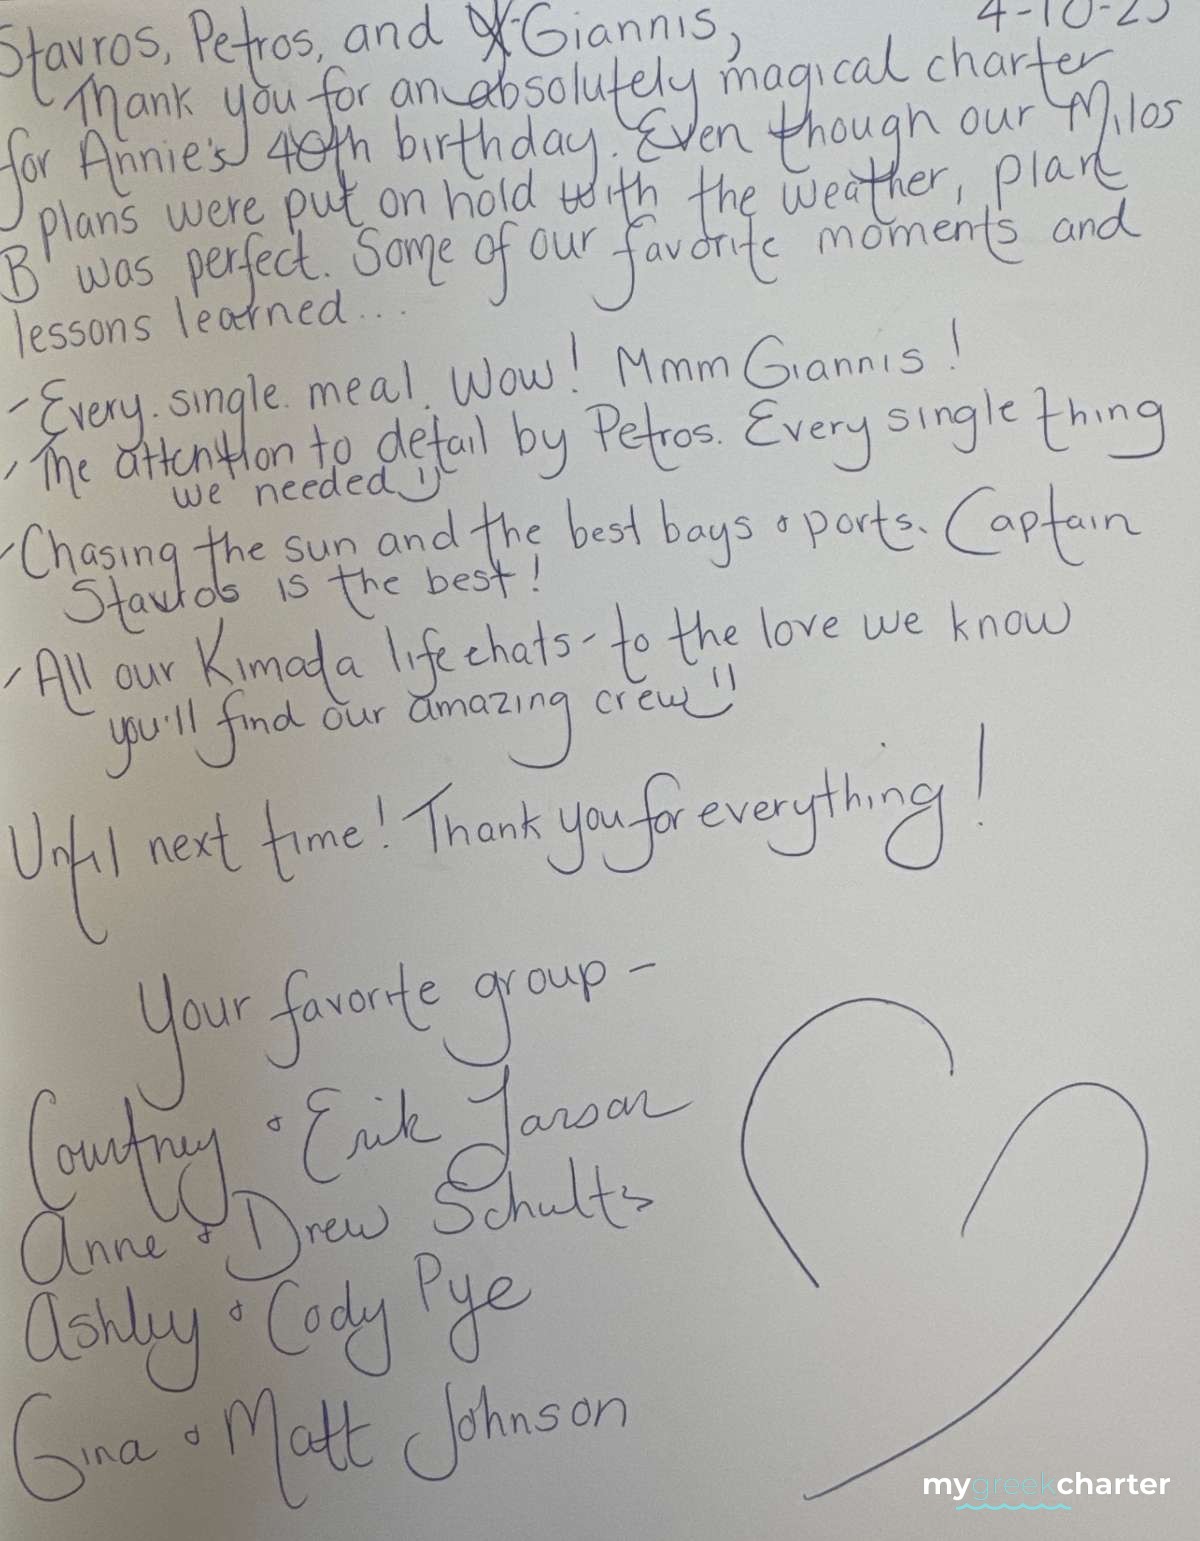 4-10-23
Stavros, Petros, and Giannis,
Thank you for an absolutely magical charter
for Annie's 40th birthday. Even though our Milos
plans were put on hold with the weather, plan
B was perfect. Some of our favorite moments and
lessons learned...
- Every. single. meal. Wow! Mmm Giannis!
- The attention to detail by Petros. Every single thing
we needed
- Chasing the sun and the best bays & ports. Captain
Stavros is the best!
- All our Kimada life chats - to the love we know
you'll find our amazing crew
Until next time! Thank you for everything!
Your favorite group -
Courtney & Erik Larson
Anne & Drew Schultz
Ashley & Cody Pye
Gina & Matt Johnson
mygreekcharter